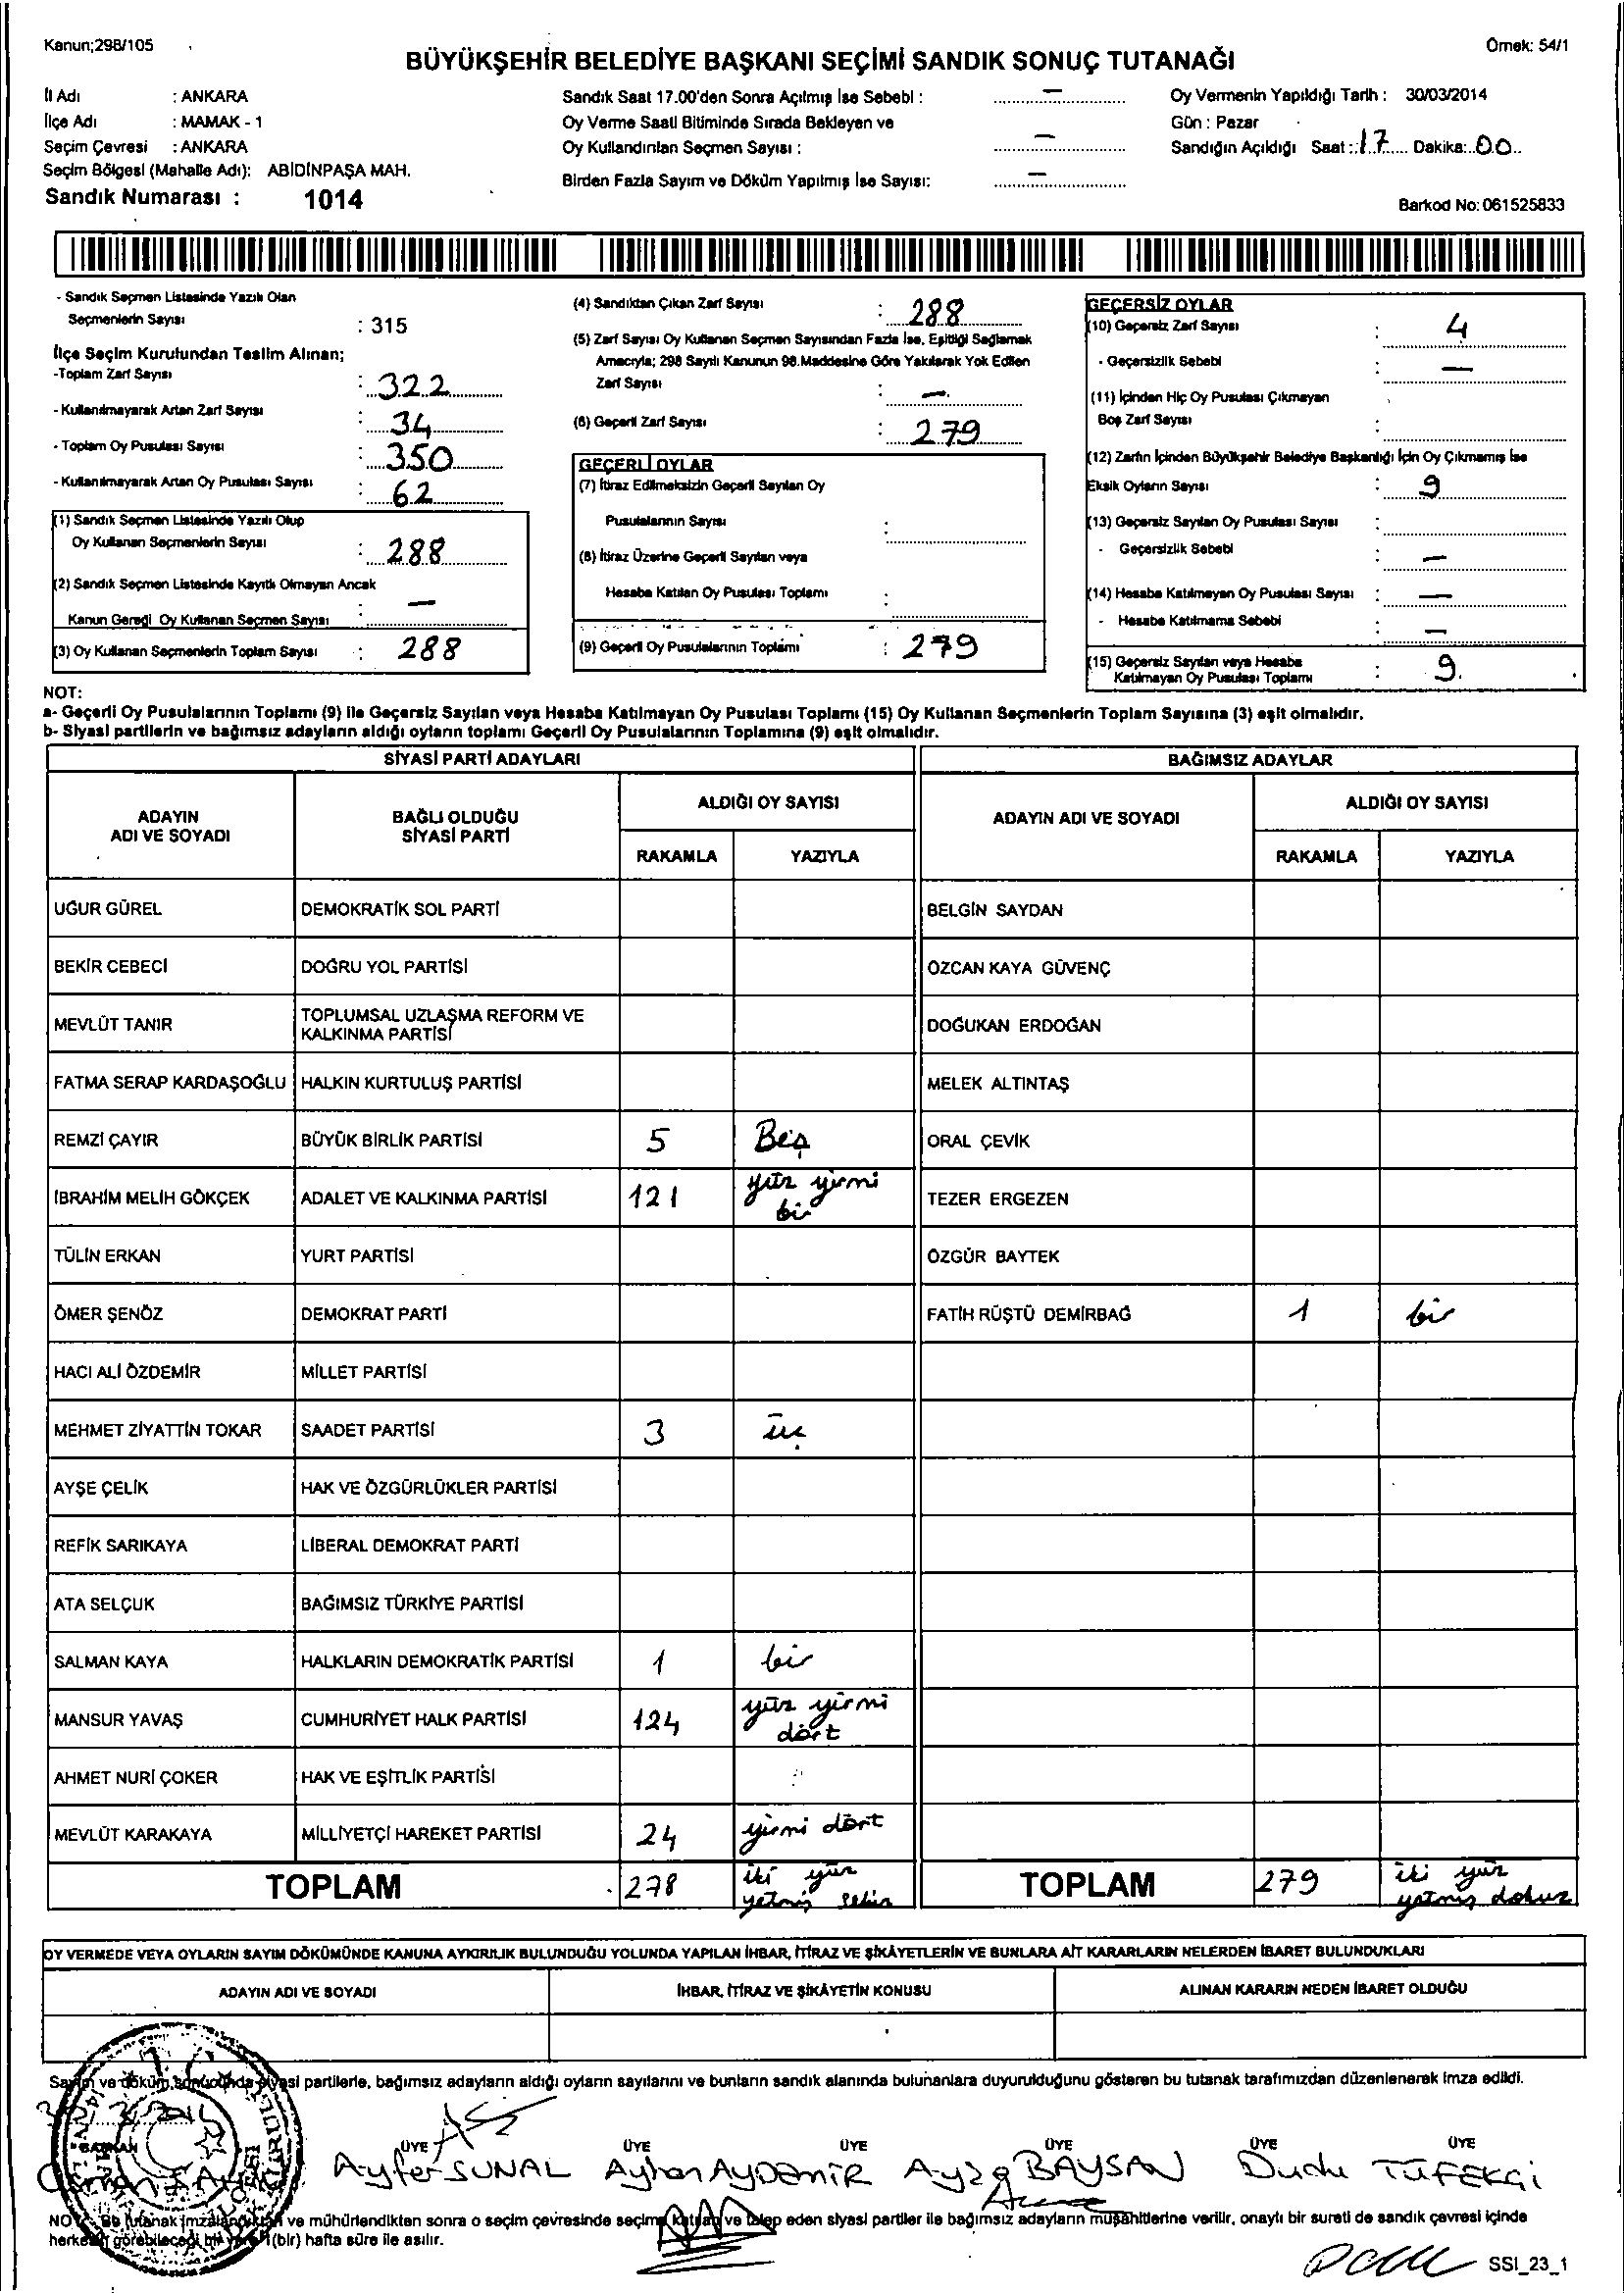 Kanun;298/105
Örnek: 54/1
BÜYÜKŞEHİR BELEDİYE BAŞKANI SEÇİMİ SANDIK SONUÇ TUTANAĞI
İl Adı : ANKARA
İlçe Adı : MAMAK - 1
Seçim Çevresi : ANKARA
Seçim Bölgesi (Mahalle Adı): ABİDİNPAŞA MAH.
Sandık Numarası : 1014
Sandık Saat 17.00'den Sonra Açılmış İse Sebebi : —
Oy Verme Saati Bitiminde Sırada Bekleyen ve
Oy Kullandırılan Seçmen Sayısı : —
Birden Fazla Sayım ve Döküm Yapılmış İse Sayısı: —
Oy Vermenin Yapıldığı Tarih : 30/03/2014
Gün : Pazar
Sandığın Açıldığı Saat : 17 Dakika: 00
Barkod No: 061525833
- Sandık Seçmen Listesinde Yazılı Olan
Seçmenlerin Sayısı : 315
İlçe Seçim Kurulundan Teslim Alınan;
-Toplam Zarf Sayısı : 322
- Kullanılmayarak Artan Zarf Sayısı : 34
- Toplam Oy Pusulası Sayısı : 350
- Kullanılmayarak Artan Oy Pusulası Sayısı : 62
(1) Sandık Seçmen Listesinde Yazılı Olup
Oy Kullanan Seçmenlerin Sayısı : 288
(2) Sandık Seçmen Listesinde Kayıtlı Olmayan Ancak
Kanun Gereği Oy Kullanan Seçmen Sayısı : —
(3) Oy Kullanan Seçmenlerin Toplam Sayısı : 288
(4) Sandıktan Çıkan Zarf Sayısı : 288
(5) Zarf Sayısı Oy Kullanan Seçmen Sayısından Fazla İse, Eşitliği Sağlamak
Amacıyla; 298 Sayılı Kanunun 98.Maddesine Göre Yakılarak Yok Edilen
Zarf Sayısı : —
(6) Geçerli Zarf Sayısı : 279
GEÇERLİ OYLAR
(7) İtiraz Edilmeksizin Geçerli Sayılan Oy
Pusulalarının Sayısı :
(8) İtiraz Üzerine Geçerli Sayılan veya
Hesaba Katılan Oy Pusulası Toplamı :
(9) Geçerli Oy Pusulalarının Toplamı : 279
GEÇERSİZ OYLAR
(10) Geçersiz Zarf Sayısı : 4
- Geçersizlik Sebebi : —
(11) İçinden Hiç Oy Pusulası Çıkmayan
Boş Zarf Sayısı :
(12) Zarfın İçinden Büyükşehir Belediye Başkanlığı İçin Oy Çıkmamış İse
Eksik Oyların Sayısı : 9
(13) Geçersiz Sayılan Oy Pusulası Sayısı :
- Geçersizlik Sebebi : —
(14) Hesaba Katılmayan Oy Pusulası Sayısı : —
- Hesaba Katılmama Sebebi : —
(15) Geçersiz Sayılan veya Hesaba
Katılmayan Oy Pusulası Toplamı : 9.
NOT:
a- Geçerli Oy Pusulalarının Toplamı (9) ile Geçersiz Sayılan veya Hesaba Katılmayan Oy Pusulası Toplamı (15) Oy Kullanan Seçmenlerin Toplam Sayısına (3) eşit olmalıdır.
b- Siyasi partilerin ve bağımsız adayların aldığı oyların toplamı Geçerli Oy Pusulalarının Toplamına (9) eşit olmalıdır.
SİYASİ PARTİ ADAYLARI
BAĞIMSIZ ADAYLAR
ADAYIN
ADI VE SOYADI
BAĞLI OLDUĞU
SİYASİ PARTİ
ALDIĞI OY SAYISI
RAKAMLA YAZIYLA
ADAYIN ADI VE SOYADI
ALDIĞI OY SAYISI
RAKAMLA YAZIYLA
UĞUR GÜREL DEMOKRATİK SOL PARTİ BELGİN SAYDAN
BEKİR CEBECİ DOĞRU YOL PARTİSİ ÖZCAN KAYA GÜVENÇ
MEVLÜT TANIR TOPLUMSAL UZLAŞMA REFORM VE
KALKINMA PARTİSİ DOĞUKAN ERDOĞAN
FATMA SERAP KARDAŞOĞLU HALKIN KURTULUŞ PARTİSİ MELEK ALTINTAŞ
REMZİ ÇAYIR BÜYÜK BİRLİK PARTİSİ 5 Beş ORAL ÇEVİK
İBRAHİM MELİH GÖKÇEK ADALET VE KALKINMA PARTİSİ 121 yüz yirmi
bir TEZER ERGEZEN
TÜLİN ERKAN YURT PARTİSİ ÖZGÜR BAYTEK
ÖMER ŞENÖZ DEMOKRAT PARTİ FATİH RÜŞTÜ DEMİRBAĞ 1 bir
HACI ALİ ÖZDEMİR MİLLET PARTİSİ
MEHMET ZİYATTİN TOKAR SAADET PARTİSİ 3 üç
AYŞE ÇELİK HAK VE ÖZGÜRLÜKLER PARTİSİ
REFİK SARIKAYA LİBERAL DEMOKRAT PARTİ
ATA SELÇUK BAĞIMSIZ TÜRKİYE PARTİSİ
SALMAN KAYA HALKLARIN DEMOKRATİK PARTİSİ 1 bir
MANSUR YAVAŞ CUMHURİYET HALK PARTİSİ 124 yüz yirmi
dört
AHMET NURİ ÇOKER HAK VE EŞİTLİK PARTİSİ
MEVLÜT KARAKAYA MİLLİYETÇİ HAREKET PARTİSİ 24 yirmi dört
TOPLAM 278 iki yüz
yetmiş sekiz
TOPLAM 279 iki yüz
yetmiş dokuz
OY VERMEDE VEYA OYLARIN SAYIM DÖKÜMÜNDE KANUNA AYKIRILIK BULUNDUĞU YOLUNDA YAPILAN İHBAR, İTİRAZ VE ŞİKÂYETLERİN VE BUNLARA AİT KARARLARIN NELERDEN İBARET BULUNDUKLARI
ADAYIN ADI VE SOYADI İHBAR, İTİRAZ VE ŞİKÂYETİN KONUSU ALINAN KARARIN NEDEN İBARET OLDUĞU
Sayım ve döküm sonucunda siyasi partilerle, bağımsız adayların aldığı oyların sayılarını ve bunların sandık alanında bulunanlara duyurulduğunu gösteren bu tutanak tarafımızdan düzenlenerek imza edildi.
BAŞKAN ÜYE ÜYE ÜYE ÜYE ÜYE ÜYE
Ayfer SUNAL Ayhan AYDEMİR Ayşe BAYSAN Dudu TÜFEKÇİ
NOT: Bu tutanak imzalandıktan ve mühürlendikten sonra o seçim çevresinde seçime katılan ve talep eden siyasi partiler ile bağımsız adayların müşahitlerine verilir, onaylı bir sureti de sandık çevresi içinde
herkesin görebileceği bir yere 1(bir) hafta süre ile asılır.
SSI_23_1